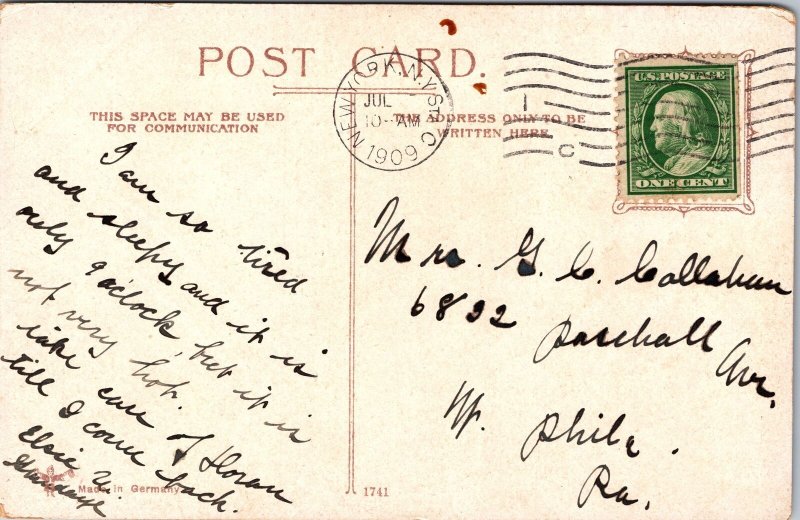 POST CARD.
THIS SPACE MAY BE USED
FOR COMMUNICATION
THIS ADDRESS ONLY TO BE
WRITTEN HERE
NEW YORK, N.Y. STA C
JUL
10-AM
1909
C
U.S. POSTAGE
ONE CENT
I am so tired
and sleepy and it is
only 9 o'clock, but it is
not very hot.
take care of
till I come back.
Elsie
Mrs. G. C. Callahan
6822
Paschall
Ave.
W. Phila.
Pa.
Made in Germany
1741